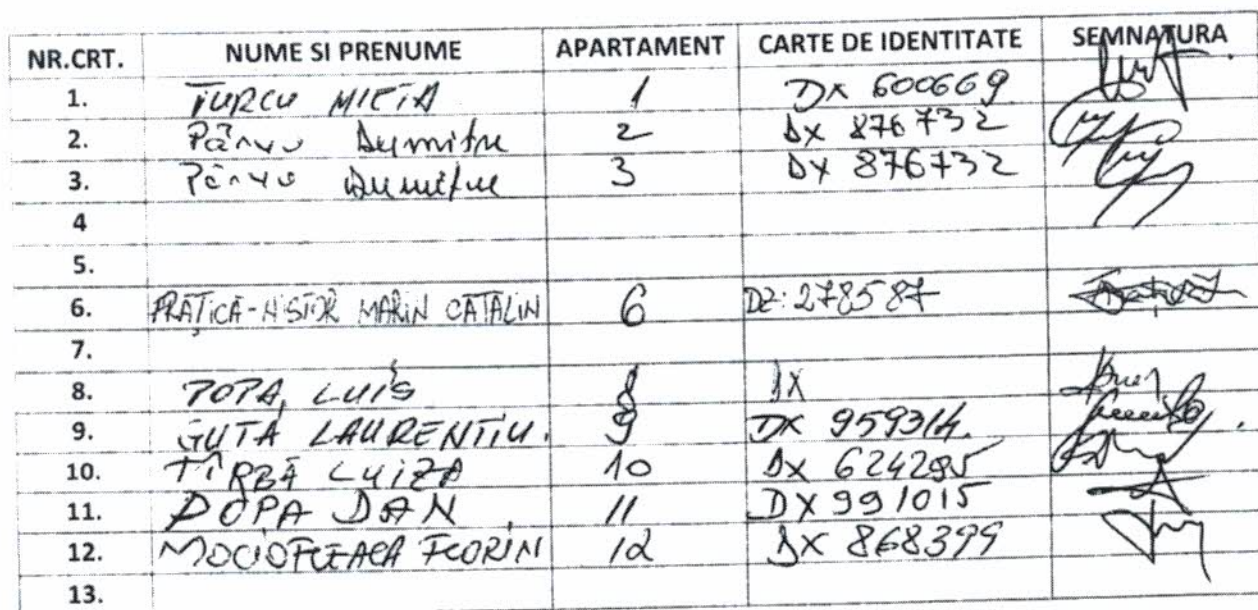 NR.CRT. NUME SI PRENUME APARTAMENT CARTE DE IDENTITATE SEMNATURA
1. TURCU 1 DX 600669
2. Pârvu Dumitru 2 DX 876732
3. Pârvu Dumitru 3 DX 876732
4
5.
6. MARIN CATALIN 6 DZ: 278587
7.
8. POPA LUIS 8 DX
9. GUTA LAURENTIU. 9 DX 959314.
10. TÎRBĂ LUIZA 10 DX
11. POPA DAN 11 DX 991015
12. FLORIN 12 DX 868399
13.